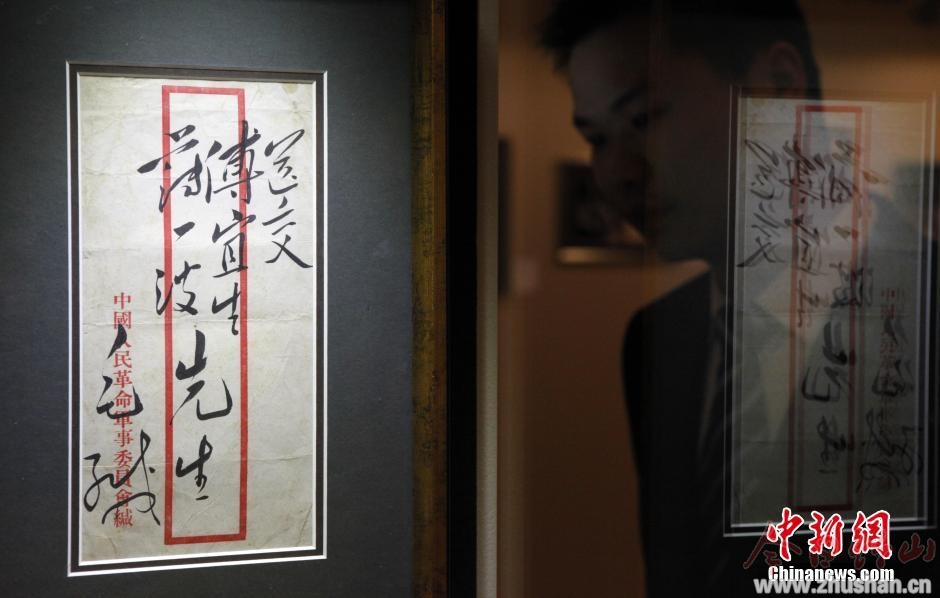 送交
傅宜生
薄一波
先生
毛緘
中國人民革命軍事委員會緘
中新網
Chinanews.com
www.zhushan.cn